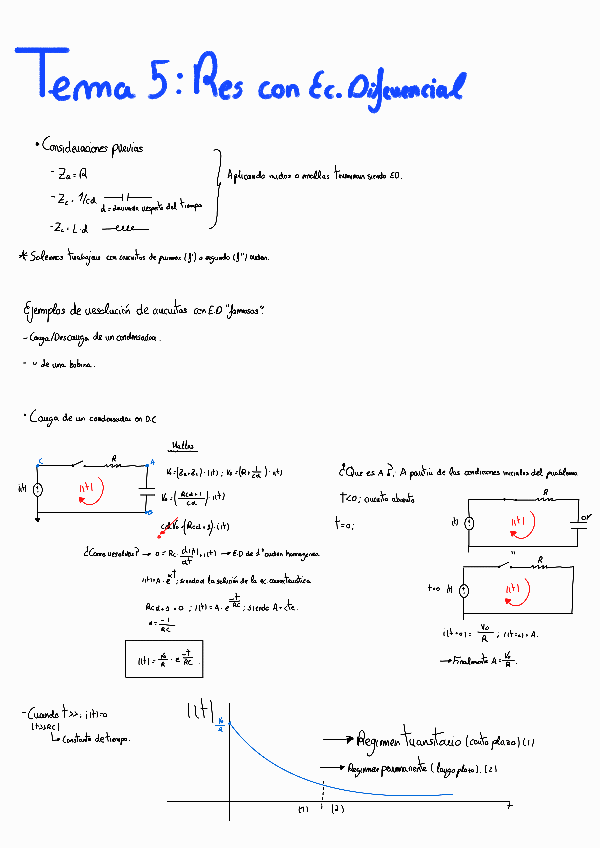 Tema 5: Res con Ec. Diferencial
• Consideraciones previas
- Za = R
- Zc = 1/cd
d = derivada respecto del tiempo
- Zc = L·d
Aplicando nudos o mallas terminan siendo ED.
* Solemos trabajar con circuitos de primer (f') o segundo (f'') orden.
Ejemplos de resolución de circuitos con E.D "famosos":
- Carga/Descarga de un condensador.
- " de una bobina.
• Carga de un condensador en D.C
Mallas
C
R
A
i(t)
V0 = (Za+Zc)·i(t) ; V0 = (R + 1/cd)·i(t)
V0 = (Rcd+1/cd)·i(t)
cd·V0 = (Rcd+1)·i(t)
¿Como resolver? → 0 = Rc · di(t)/dt + i(t) → E.D de 1er orden homogénea
; siendo α la solución de la ec. característica
Rcα+1 = 0 ; i(t) = A·e^(-t/RC) ; siendo A = cte.
α = -1/RC
i(t) = V0/R · e^(-t/RC).
¿Que es A? A partir de las condiciones iniciales del problema
t<0; circuito abierto
t=0;
R
0V
i(t)
t=0
R
i(t)
i(t=0) = V0/R ; i(t=0) = A.
→ Finalmente A = V0/R.
- Cuando t>>; i(t)=0
(t>>RC)
↳ Constante de tiempo.
i(t)
V0/R
→ Regimen transitorio (corto plazo) (1)
→ Regimen permanente (largo plazo). (2)
(1) (2)
t